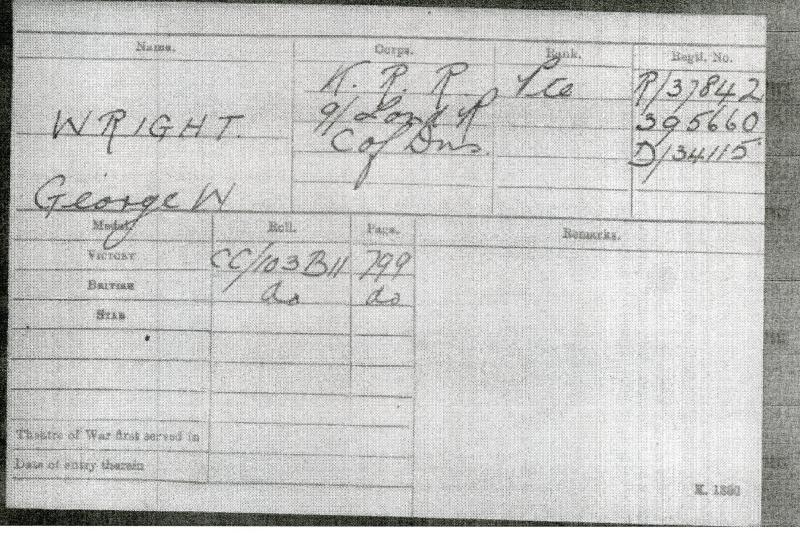 Name. Corps. Rank. Regtl. No.
K. R. R. Pte R/37842
WRIGHT. 9/Lond R 395660
C of Dns. D/34115
George W
Medal. Roll. Page. Remarks.
VICTORY CC/103B11 799
BRITISH do do
STAR
Theatre of War first served in
Date of entry therein
K. 1380